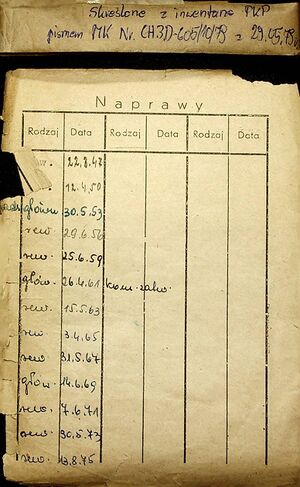 Skreślono z inwentarza PKP
pismem MK Nr. CH3D-605/10/78 z 29.05.78r.
Naprawy
Rodzaj Data Rodzaj Data Rodzaj Data
rew. 22.8.47
12.4.50
główn 30.5.53
rew 29.6.56
rew 25.6.59
głów. 26.4.61 kom. zakw.
rew. 15.5.63
rew 3.4.65
rew 31.5.67
głów 14.6.69
rew. 7.6.71
rew. 30.5.73
rew. 13.8.75